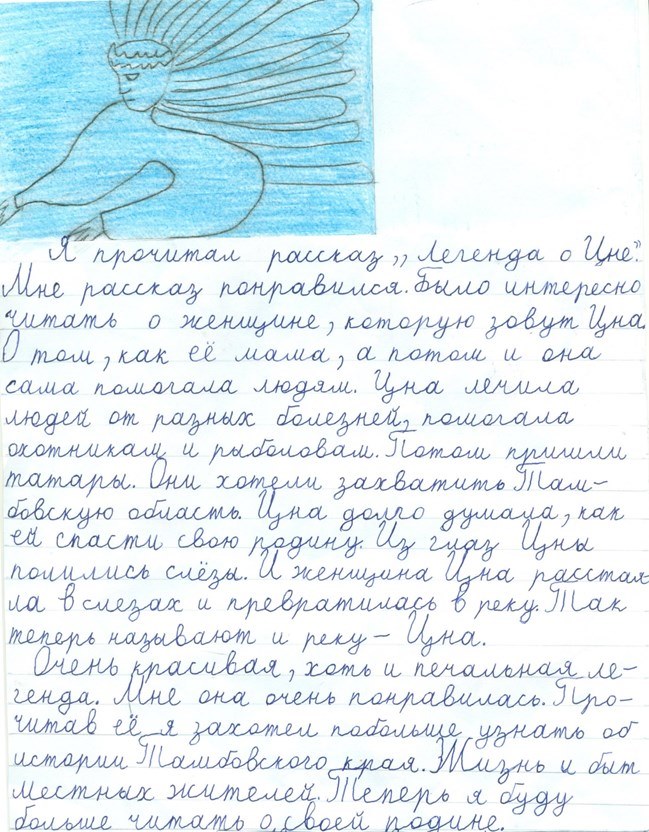 Я прочитал рассказ „Легенда о Цне".
Мне рассказ понравился. Было интересно
читать о женщине, которую зовут Цна.
О том, как её мама, а потом и она
сама помогала людям. Цна лечила
людей от разных болезней, помогала
охотникам и рыболовам. Потом пришли
татары. Они хотели захватить Там-
бовскую область. Цна долго думала, как
ей спасти свою родину. Из глаз Цны
полились слёзы. И женщина Цна растая-
ла в слезах и превратилась в реку. Так
теперь называют и реку – Цна.
Очень красивая, хоть и печальная ле-
генда. Мне она очень понравилась. Про-
читав её я захотел побольше узнать об
истории Тамбовского края. Жизнь и быт
местных жителей. Теперь я буду
больше читать о своей родине.